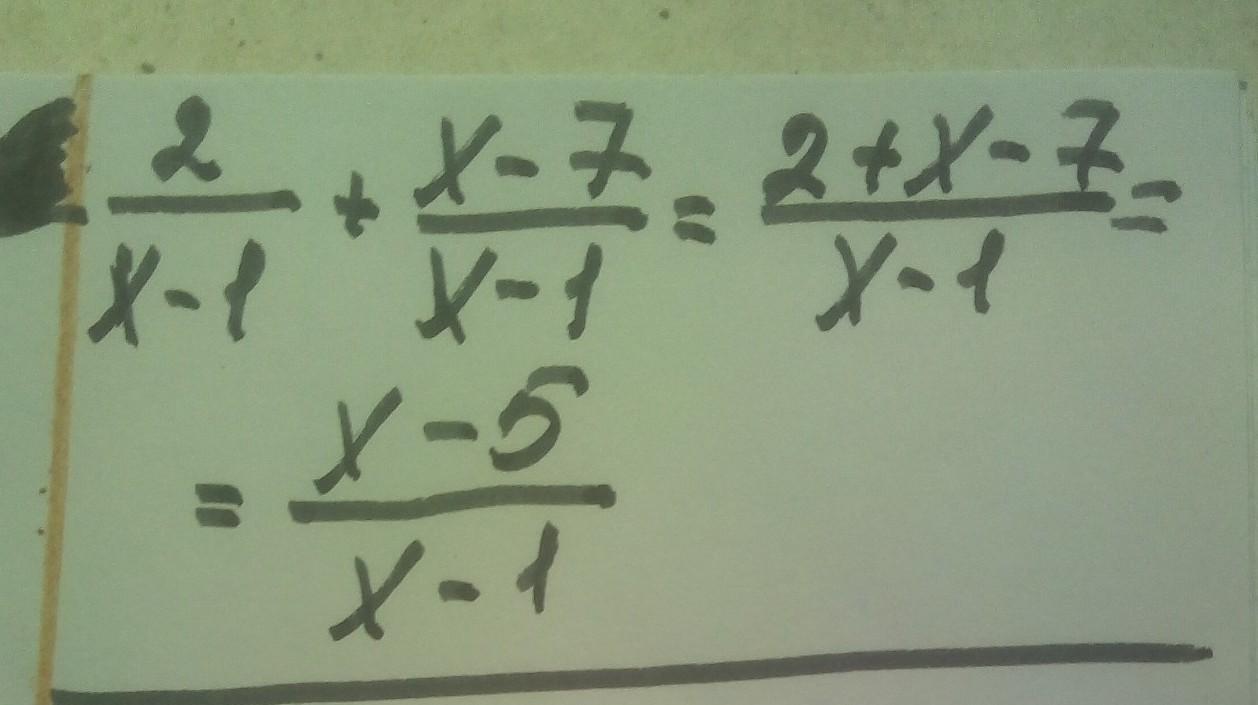 2/(x-1) + (x-7)/(x-1) = (2+x-7)/(x-1) =
= (x-5)/(x-1)